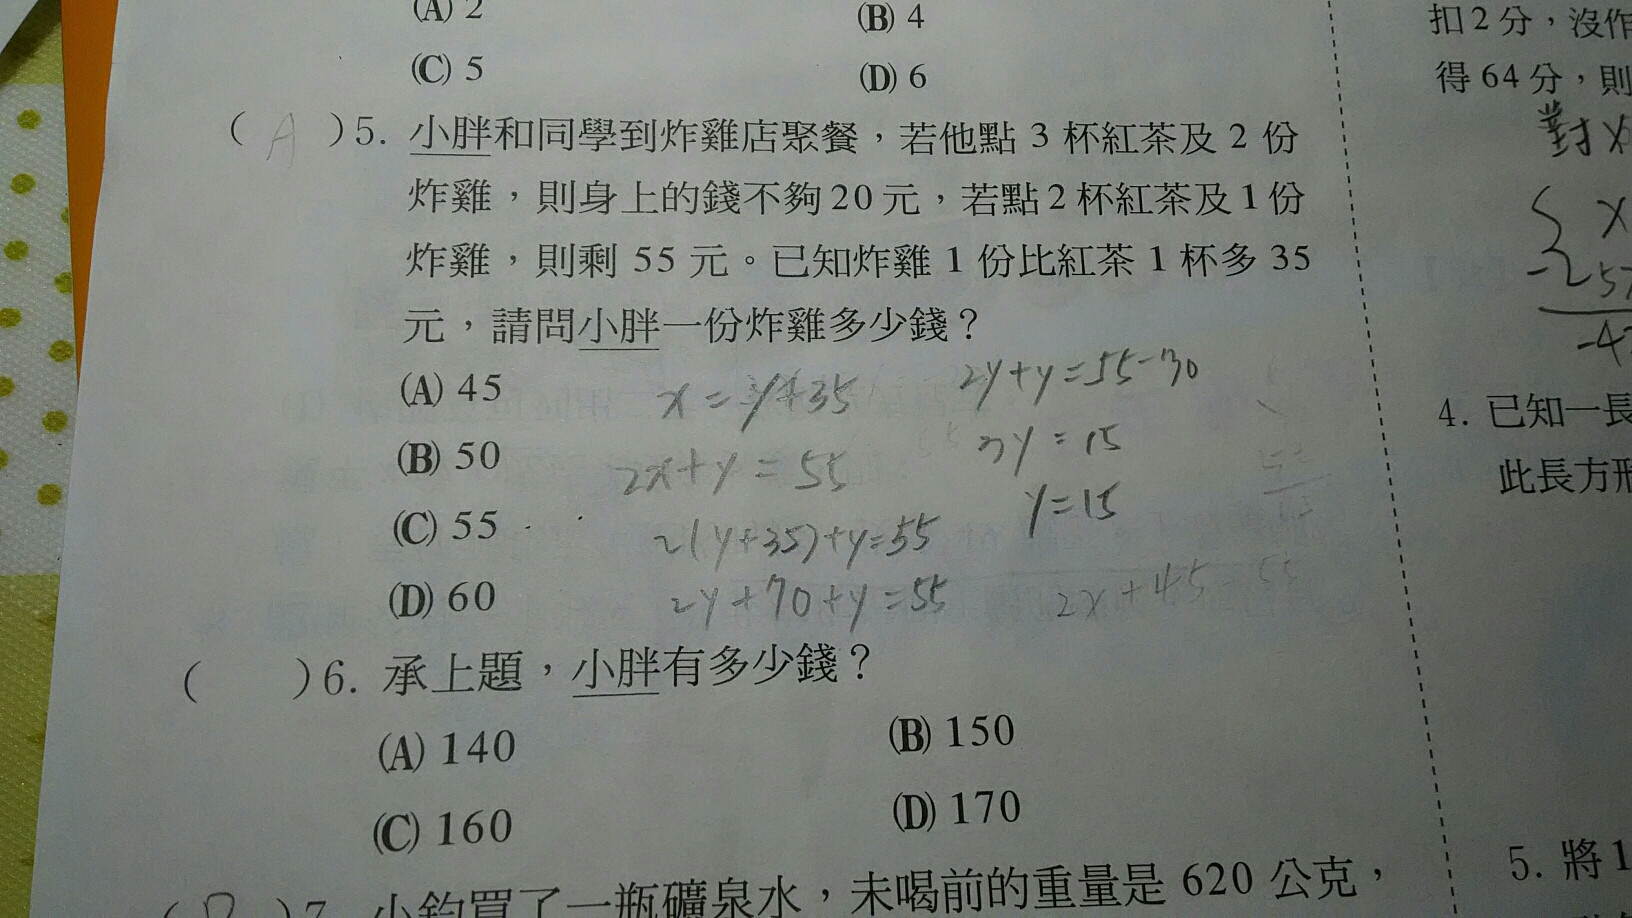 (A) 2
(B) 4
(C) 5
(D) 6
( A )5. 小胖和同學到炸雞店聚餐，若他點 3 杯紅茶及 2 份
炸雞，則身上的錢不夠 20 元，若點 2 杯紅茶及 1 份
炸雞，則剩 55 元。已知炸雞 1 份比紅茶 1 杯多 35
元，請問小胖一份炸雞多少錢？
(A) 45
(B) 50
(C) 55
(D) 60
x = y+35
2x+y = 55
2(y+35)+y=55
2y+70+y=55
2y+y=55-70
3y = 15
y=15
2x+45 55
( )6. 承上題，小胖有多少錢？
(A) 140
(B) 150
(C) 160
(D) 170
7. 小鈞買了一瓶礦泉水，未喝前的重量是 620 公克，
扣 2 分，沒作
得 64 分，則
對 x
x
-4
4. 已知一長
此長方形
5. 將 1